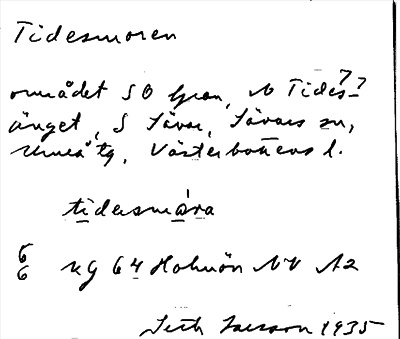 Tidesmoren
området SO Gran, N Tides-
änget, S Sävar, Sävars sn,
Umeå tg, Västerbottens l.
tidersmåra
66 KG 64 Holmön NV A2
Seth Larsson 1935